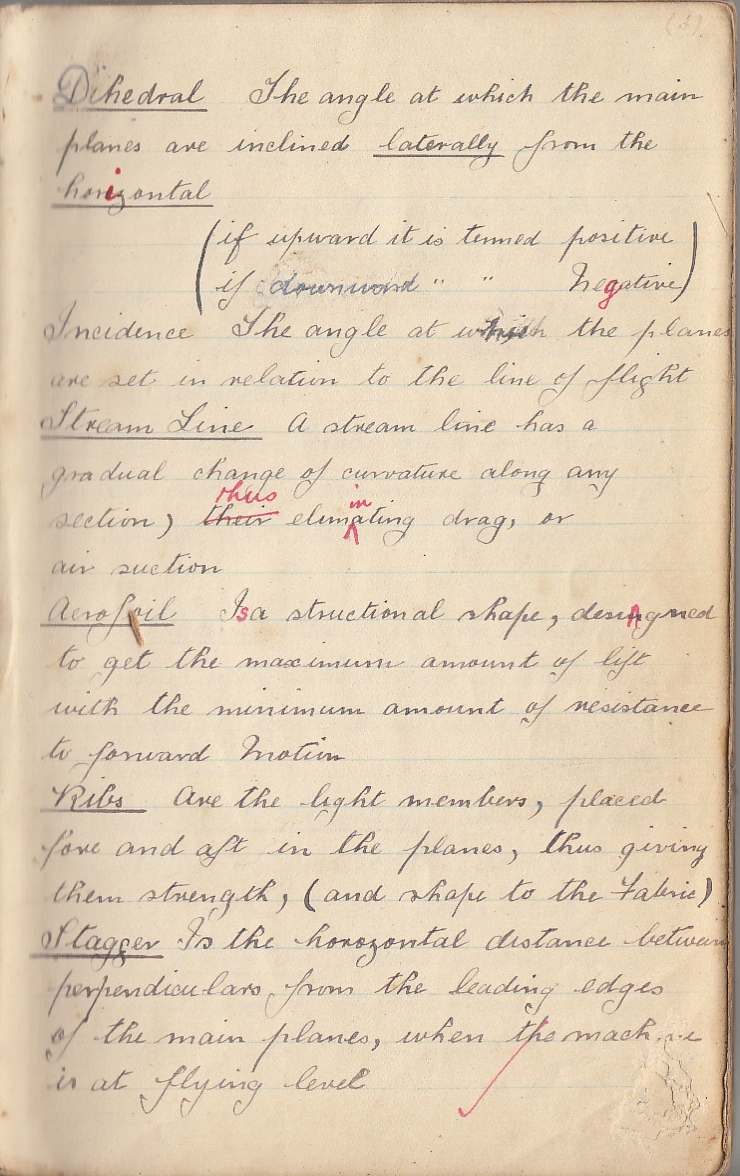 (1)
Dihedral The angle at which the main
planes are inclined laterally from the
horizontal
(if upward it is termed positive
if downward " " Negative)
Incidence The angle at which the planes
are set in relation to the line of flight
Stream Line A stream line has a
gradual change of curvature along any
section, their thus eliminating drag, or
air suction
Aerofoil Is a structional shape, designed
to get the maximum amount of lift
with the minimum amount of resistance
to forward Motion
Ribs Are the light members, placed
fore and aft in the planes, thus giving
them strength, (and shape to the Fabric)
Stagger Is the horozontal distance between
perpendiculars from the leading edges
of the main planes, when the machine
is at flying level